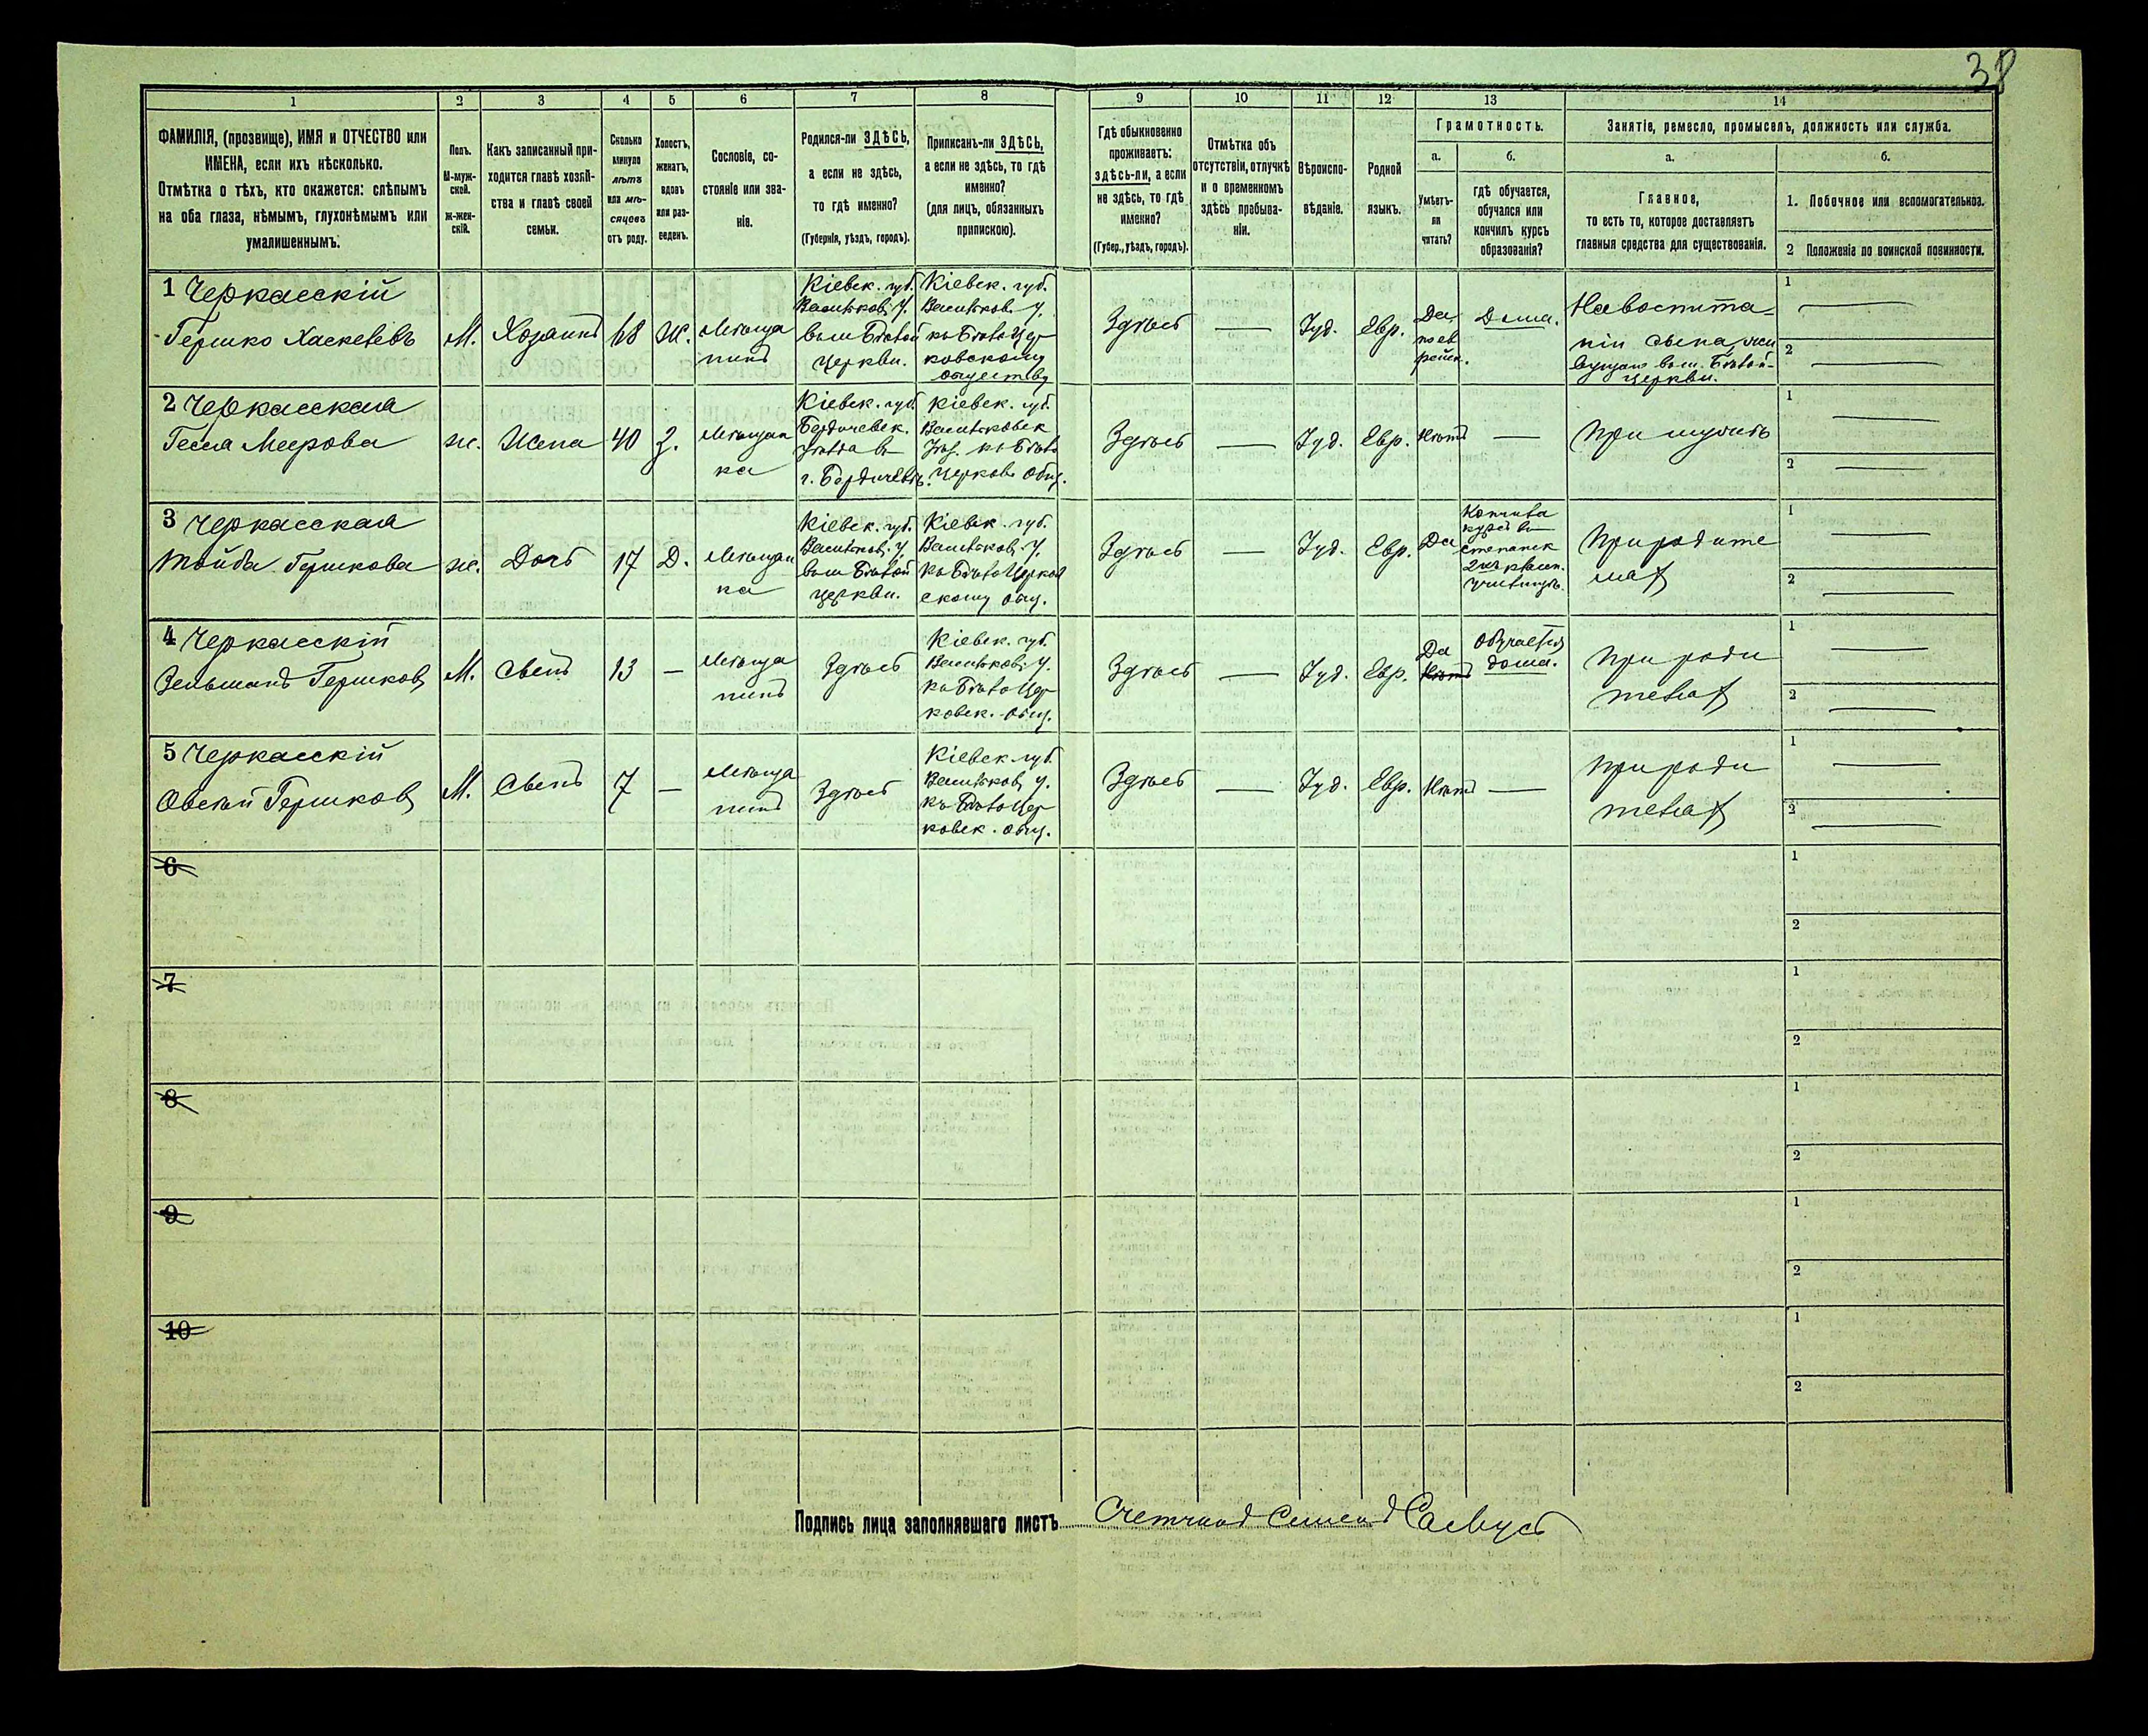 38
1 2 3 4 5 6 7 8 9 10 11 12 13 14
ФАМИЛІЯ, (прозвище), ИМЯ и ОТЧЕСТВО или
ИМЕНА, если ихъ нѣсколько.
Отмѣтка о тѣхъ, кто окажется: слѣпымъ
на оба глаза, нѣмымъ, глухонѣмымъ или
умалишеннымъ.
Полъ.
М-муж-
ской.
Ж-жен-
скій.
Какъ записанный при-
ходится главѣ хозяй-
ства и главѣ своей
семьи.
Сколько
минуло
лѣтъ
или мѣ-
сяцевъ
отъ роду.
Холостъ,
женатъ,
вдовъ
или раз-
веденъ.
Сословіе, со-
стояніе или зва-
ніе.
Родился-ли ЗДѢСЬ,
а если не здѣсь,
то гдѣ именно?
(Губернія, уѣздъ, городъ).
Приписанъ-ли ЗДѢСЬ,
а если не здѣсь, то гдѣ
именно?
(для лицъ, обязанныхъ
припискою).
Гдѣ обыкновенно
проживаетъ:
здѣсь-ли, а если
не здѣсь, то гдѣ
именно?
(Губер., уѣздъ, городъ).
Отмѣтка объ
отсутствіи, отлучкѣ
и о временномъ
здѣсь пребыва-
ніи.
Вѣроиспо-
вѣданіе.
Родной
языкъ.
Грамотность.
а.
Умѣетъ-
ли
читать?
б.
гдѣ обучается,
обучался или
кончилъ курсъ
образованія?
Занятіе, ремесло, промыселъ, должность или служба.
а.
Главное,
то есть то, которое доставляетъ
главныя средства для существованія.
б.
1. Побочное или вспомогательное.
2 Положеніе по воинской повинности.
1 Черкасскій
Гершко Хаскелевъ
М.
Хозяинъ
68
Ж.
Мѣща
нинъ
Кіевск. губ.
Васильков. у.
въ м. Бѣлой
Церкви.
Кіевск. губ.
Васильков. у.
къ Бѣлоцер
ковскому
обществу
Здѣсь
Іуд.
Евр.
Да,
по ев
рейск.
Дома.
На воспита-
ніи сына жи
вущаго въ м. Бѣлой-
Церкви.
1
2
2 Черкасская
Гесля Меерова
ж.
Жена
40
З.
Мѣщан
ка
Кіевск. губ.
Бердичевск.
уѣзда въ
г. Бердичевѣ.
Кіевск. губ.
Васильковск
уѣз. къ Бѣло
церков. общ.
Здѣсь
Іуд.
Евр.
Нѣтъ
При мужѣ
1
2
3 Черкасская
Тойба Гершкова
ж.
Дочь
17
Д.
Мѣщан
ка
Кіевск. губ.
Васильков. у.
въ м. Бѣлой
Церкви.
Кіевск. губ.
Васильков. у.
къ Бѣлоцерков
скому общ.
Здѣсь
Іуд.
Евр.
Да
Кончила
курсъ въ
2хъ классн.
училищѣ.
При родите
ляхъ
1
2
4 Черкасскій
Зельманъ Гершковъ
М.
Сынъ
13
Мѣща
нинъ
Здѣсь
Кіевск. губ.
Васильков. у.
къ Бѣлоцер
ковск. общ.
Здѣсь
Іуд.
Евр.
Да
Нѣтъ
Обучается
дома.
При роди
теляхъ
1
2
5 Черкасскій
Овсѣй Гершковъ
М.
Сынъ
7
Мѣща
нинъ
Здѣсь
Кіевск. губ.
Васильков. у.
къ Бѣлоцер
ковск. общ.
Здѣсь
Іуд.
Евр.
Нѣтъ
При роди
теляхъ
1
2
6
1
2
7
1
2
8
1
2
9
1
2
10
1
2
Подпись лица заполнявшаго листъ Счетчикъ Семенъ